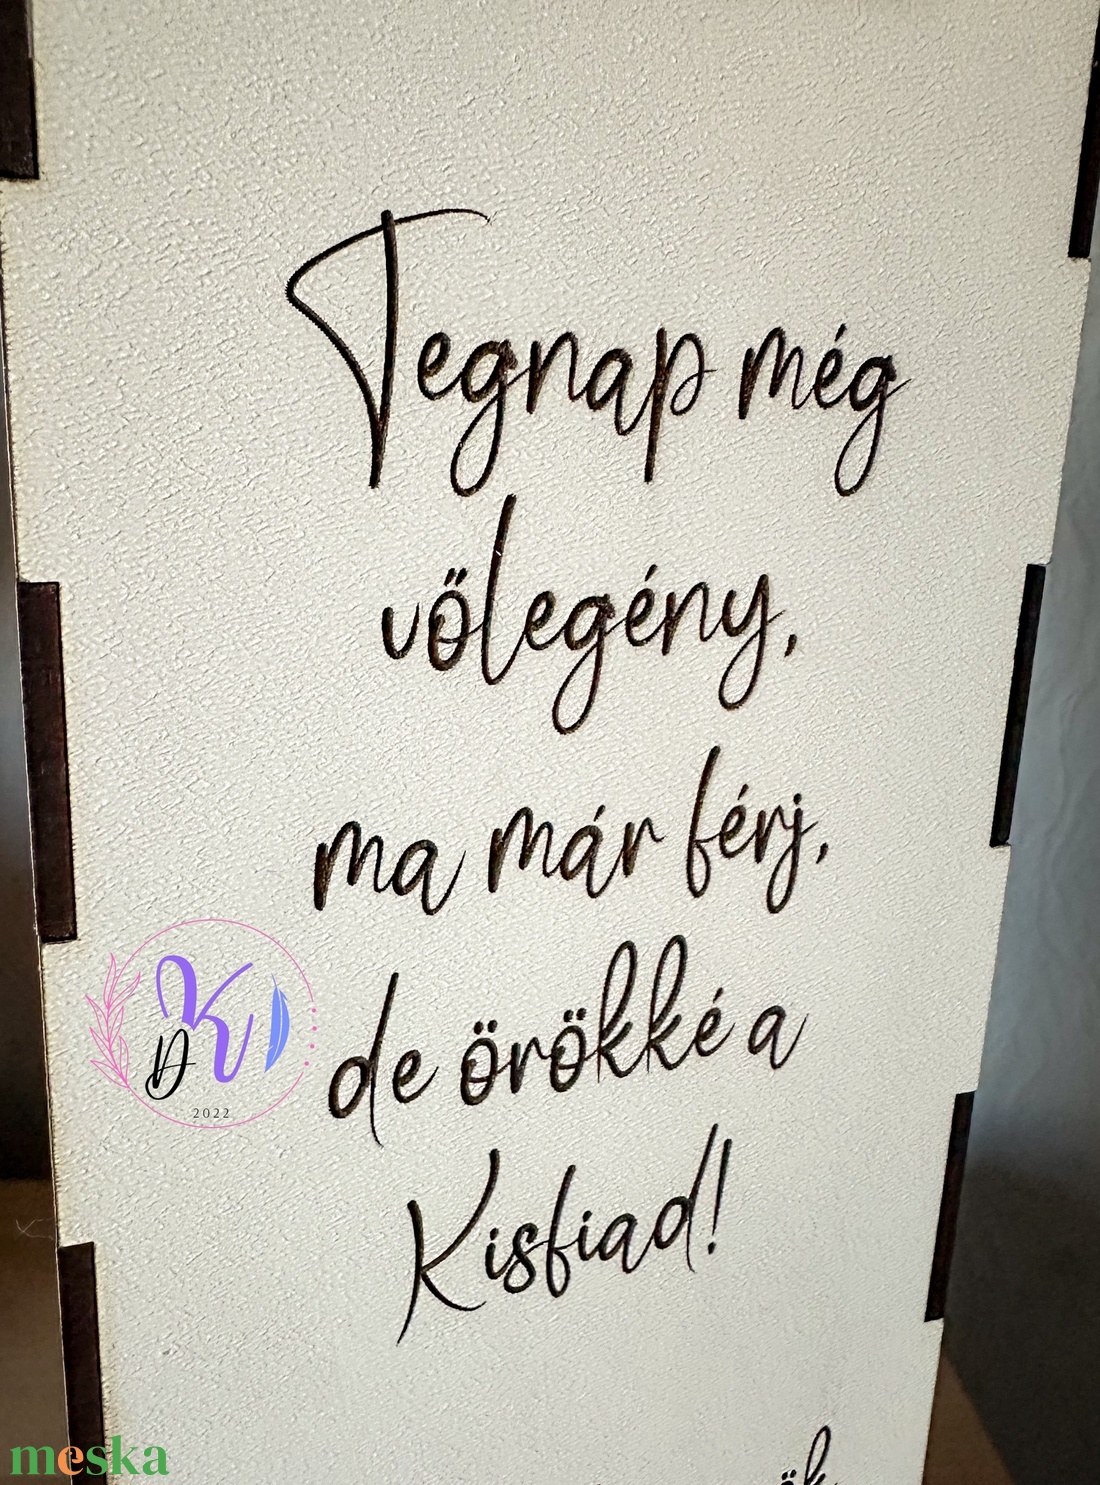 Tegnap még
vőlegény,
ma már férj,
de örökké a
Kisfiad!
DK
2022
meska